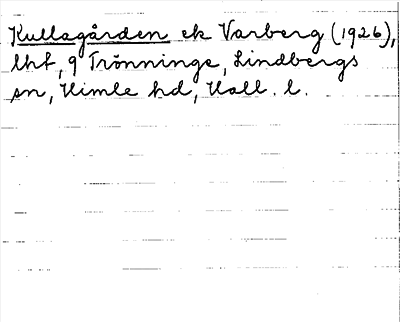 Kullagården ek Varberg (1926),
lht, 9 Trönninge, Lindbergs
sn, Himle hd, Hall. l.